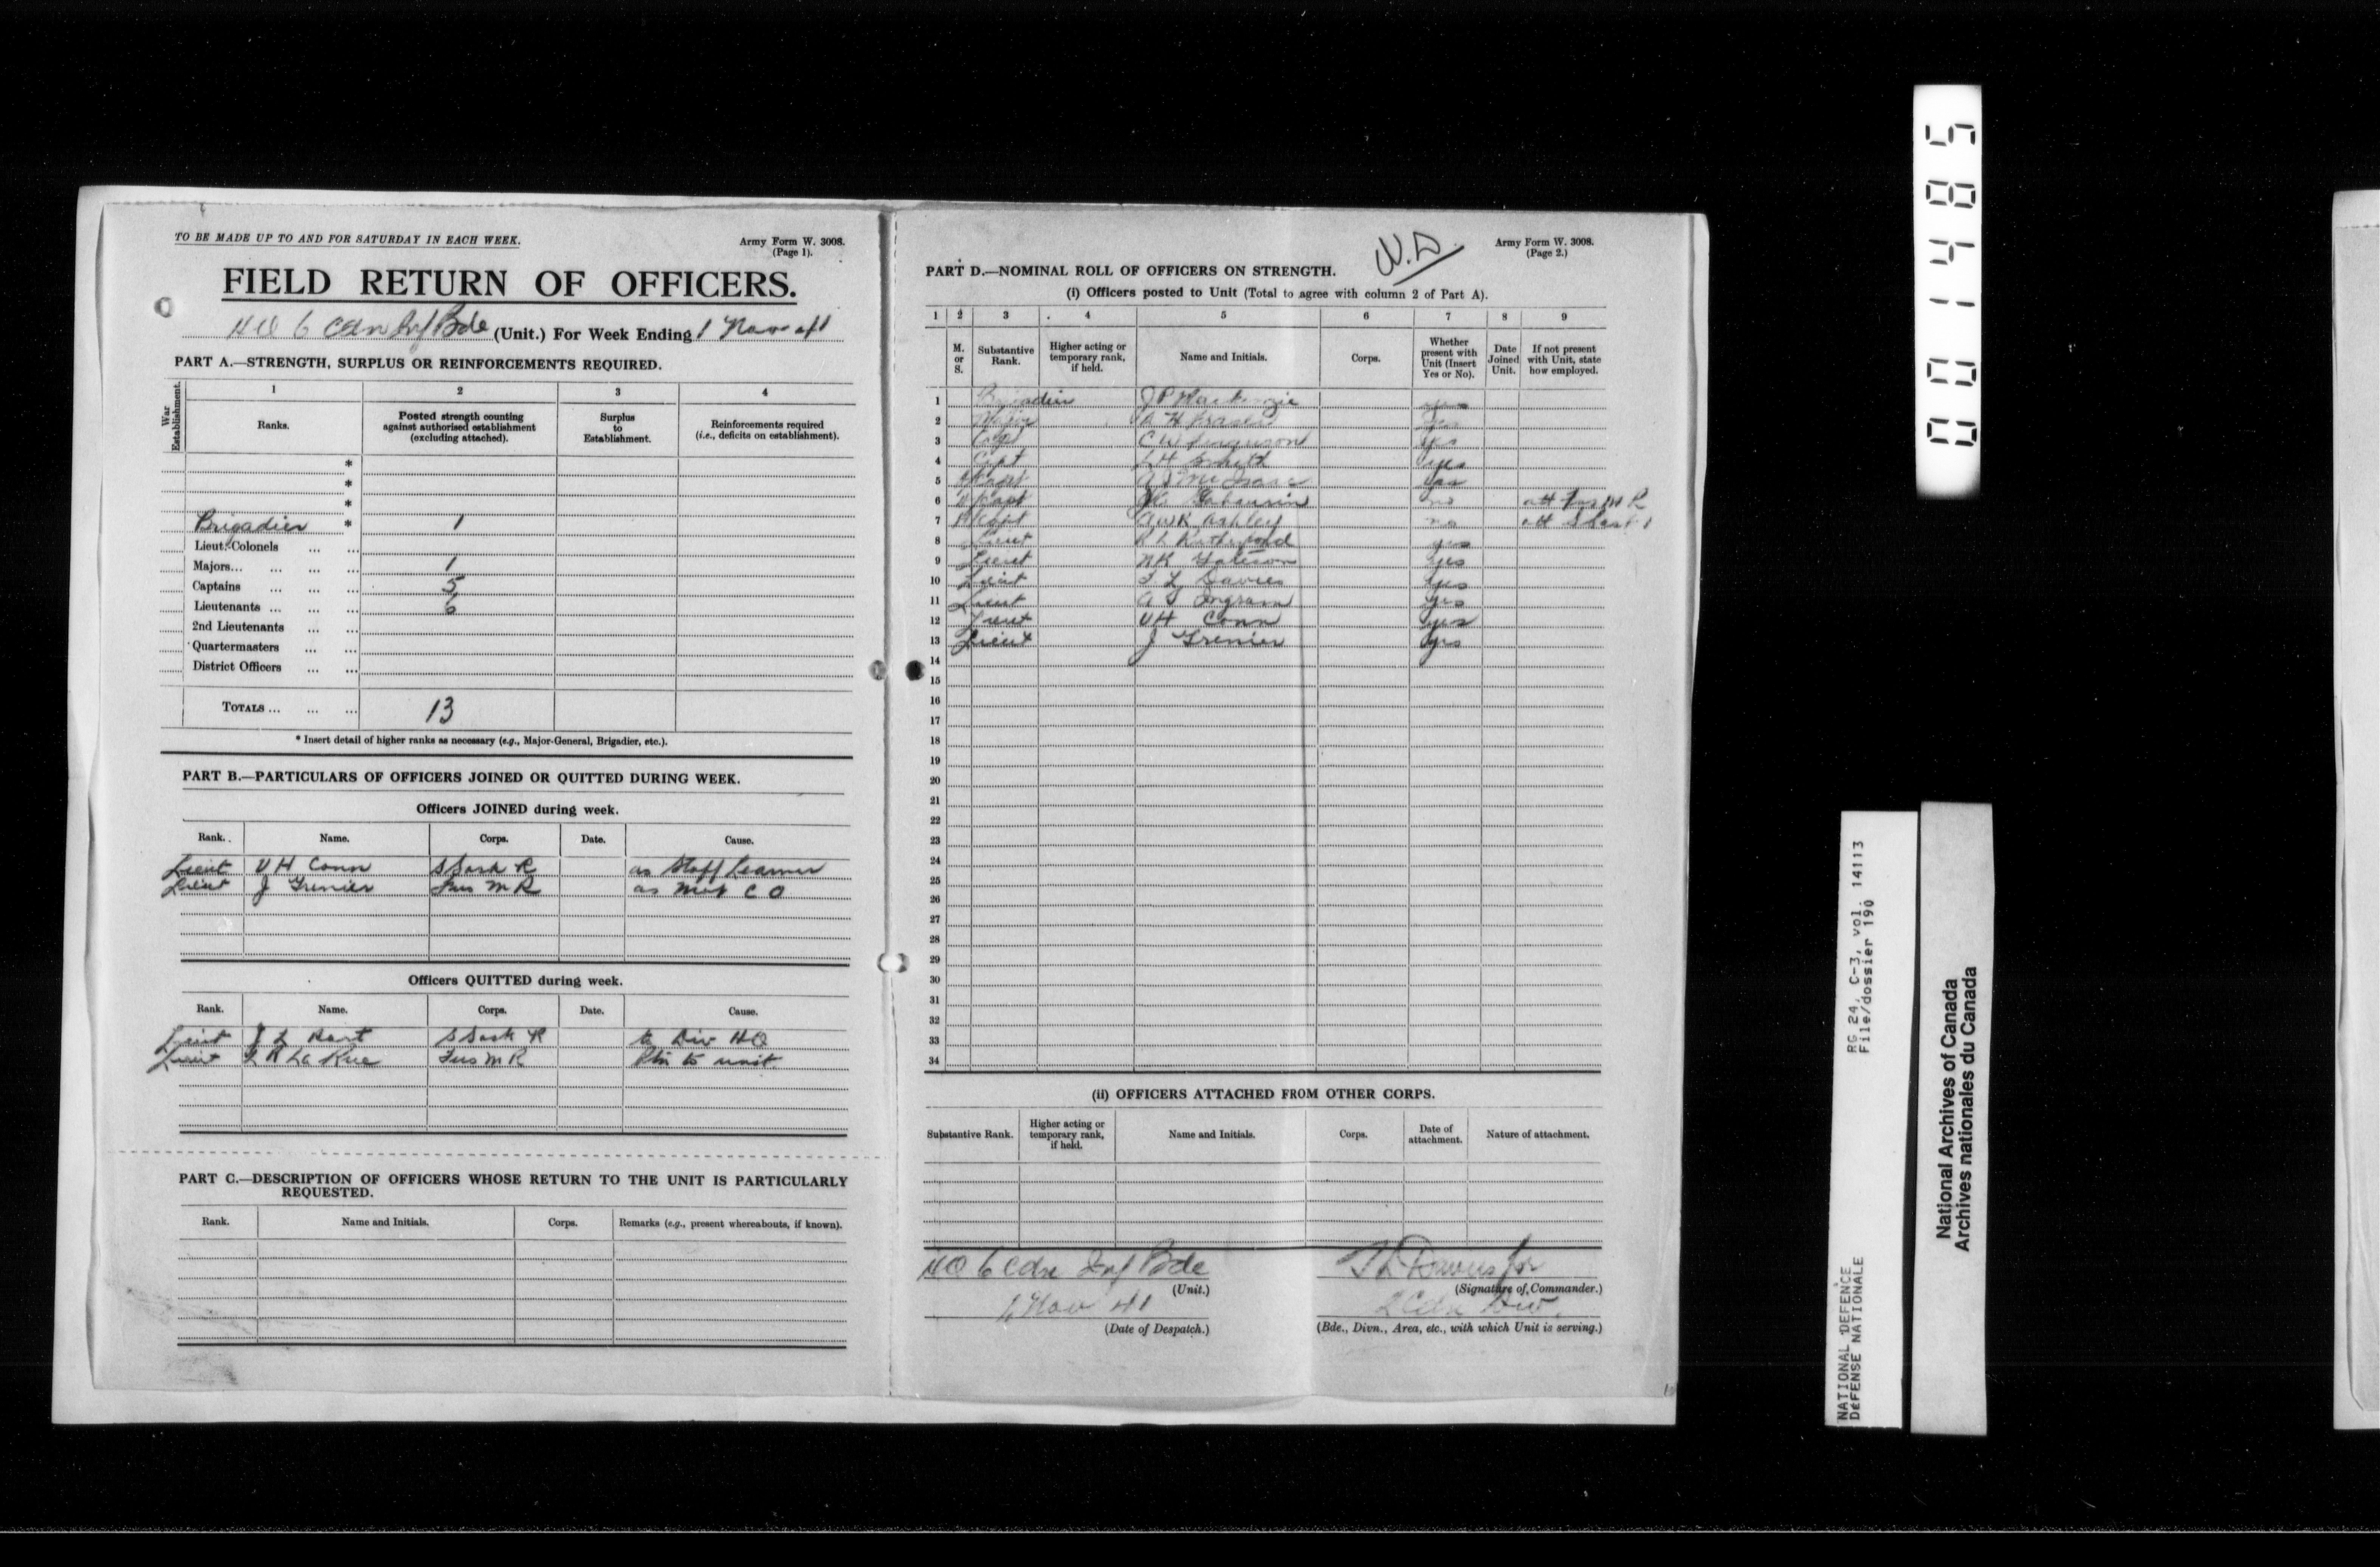 TO BE MADE UP TO AND FOR SATURDAY IN EACH WEEK.
Army Form W. 3008.
(Page 1).
FIELD RETURN OF OFFICERS.
HQ 6 Cdn Inf Bde (Unit.) For Week Ending 1 Nov 41
PART A.—STRENGTH, SURPLUS OR REINFORCEMENTS REQUIRED.
War Establishment.
1 2 3 4
Ranks. Posted strength counting against authorised establishment (excluding attached). Surplus to Establishment. Reinforcements required (i.e., deficits on establishment).
*
*
*
Brigadier * 1
Lieut.-Colonels ... ...
Majors... ... ... ... 1
Captains ... ... ... 5
Lieutenants ... ... ... 6
2nd Lieutenants ... ...
Quartermasters ... ...
District Officers ... ...
TOTALS ... ... ... 13
* Insert detail of higher ranks as necessary (e.g., Major-General, Brigadier, etc.).
PART B.—PARTICULARS OF OFFICERS JOINED OR QUITTED DURING WEEK.
Officers JOINED during week.
Rank. Name. Corps. Date. Cause.
Lieut V H Conn S Sask R as Staff Learner
Lieut J Grenier Fus M R as C O
Officers QUITTED during week.
Rank. Name. Corps. Date. Cause.
Lieut J L Hart S Sask R to Div HQ
Lieut La Rue Fus M R Rtn to unit.
PART C.—DESCRIPTION OF OFFICERS WHOSE RETURN TO THE UNIT IS PARTICULARLY
REQUESTED.
Rank. Name and Initials. Corps. Remarks (e.g., present whereabouts, if known).
W.D.
Army Form W. 3008.
(Page 2.)
PART D.—NOMINAL ROLL OF OFFICERS ON STRENGTH.
(i) Officers posted to Unit (Total to agree with column 2 of Part A).
1 2 3 4 5 6 7 8 9
M. or S. Substantive Rank. Higher acting or temporary rank, if held. Name and Initials. Corps. Whether present with Unit (Insert Yes or No). Date Joined Unit. If not present with Unit, state how employed.
1 Brigadier J P Mackenzie yes
2 Major Fraser yes
3 Capt C W Ferguson yes
4 Capt yes
5 Capt yes
6 Capt no att Fus M R
7 Capt Ashley no att S Sask R
8 Lieut R L Rutherford yes
9 Lieut yes
10 Lieut T L Davies yes
11 Lieut Ingram yes
12 Lieut V H Conn yes
13 Lieut J Grenier yes
14
15
16
17
18
19
20
21
22
23
24
25
26
27
28
29
30
31
32
33
34
(ii) OFFICERS ATTACHED FROM OTHER CORPS.
Substantive Rank. Higher acting or temporary rank, if held. Name and Initials. Corps. Date of attachment. Nature of attachment.
HQ 6 Cdn Inf Bde
(Unit.)
T L Davies for
(Signature of Commander.)
1 Nov 41
(Date of Despatch.)
2 Cdn Div.
(Bde., Divn., Area, etc., with which Unit is serving.)
001485
RG 24, C-3, vol. 14113
File/dossier 190
NATIONAL DEFENCE
DÉFENSE NATIONALE
National Archives of Canada
Archives nationales du Canada